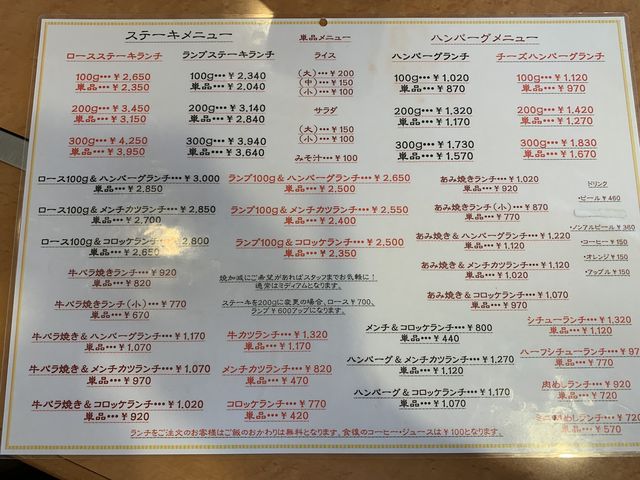 ステーキメニュー
ロースステーキランチ
100g･･･¥2,650
単品･･･¥2,350
200g･･･¥3,450
単品･･･¥3,150
300g･･･¥4,250
単品･･･¥3,950
ランプステーキランチ
100g･･･¥2,340
単品･･･¥2,040
200g･･･¥3,140
単品･･･¥2,840
300g･･･¥3,940
単品･･･¥3,640
単品メニュー
ライス
(大)･･･¥200
(中)･･･¥150
(小)･･･¥100
サラダ
(大)･･･¥150
(小)･･･¥100
みそ汁･･･¥100
ハンバーグメニュー
ハンバーグランチ
100g･･･¥1,020
単品･･･¥870
200g･･･¥1,320
単品･･･¥1,170
300g･･･¥1,730
単品･･･¥1,570
チーズハンバーグランチ
100g･･･¥1,120
単品･･･¥970
200g･･･¥1,420
単品･･･¥1,270
300g･･･¥1,830
単品･･･¥1,670
ロース100g&ハンバーグランチ･･･¥3,000
単品･･･¥2,850
ロース100g&メンチカツランチ･･･¥2,850
単品･･･¥2,700
ロース100g&コロッケランチ･･･¥2,800
単品･･･¥2,650
牛バラ焼きランチ･･･¥920
単品･･･¥820
牛バラ焼きランチ(小)･･･¥770
単品･･･¥670
牛バラ焼き&ハンバーグランチ･･･¥1,170
単品･･･¥1,070
牛バラ焼き&メンチカツランチ･･･¥1,070
単品･･･¥970
牛バラ焼き&コロッケランチ･･･¥1,020
単品･･･¥920
ランプ100g&ハンバーグランチ･･･¥2,650
単品･･･¥2,500
ランプ100g&メンチカツランチ･･･¥2,550
単品･･･¥2,400
ランプ100g&コロッケランチ･･･¥2,500
単品･･･¥2,350
焼加減にご希望があればスタッフまでお気軽に!
通常はミディアムとなります。
ステーキを200gに変更の場合、ロース¥700、
ランプ¥600アップになります。
牛カツランチ･･･¥1,320
単品･･･¥1,170
メンチカツランチ･･･¥820
単品･･･¥470
コロッケランチ･･･¥770
単品･･･¥420
あみ焼きランチ･･･¥1,020
単品･･･¥920
あみ焼きランチ(小)･･･¥870
単品･･･¥770
あみ焼き&ハンバーグランチ･･･¥1,220
単品･･･¥1,120
あみ焼き&メンチランチ･･･¥1,120
単品･･･¥1,020
あみ焼き&コロッケランチ･･･¥1,070
単品･･･¥970
メンチ&コロッケランチ･･･¥800
単品･･･¥440
ハンバーグ&メンチカツランチ･･･¥1,270
単品･･･¥1,120
ハンバーグ&コロッケランチ･･･¥1,170
単品･･･¥1,070
ドリンク
・ビール¥460
・ノンアルビール¥360
・コーヒー¥150
・オレンジ¥150
・アップル¥150
シチューランチ･･･¥1,320
単品･･･¥1,120
ハーフシチューランチ･･･¥97
単品･･･¥770
肉めしランチ･･･¥920
単品･･･¥720
ミニ肉めしランチ･･･¥720
単品･･･¥570
ランチをご注文のお客様はご飯のおかわりは無料となります。食後のコーヒー・ジュースは¥100となります。